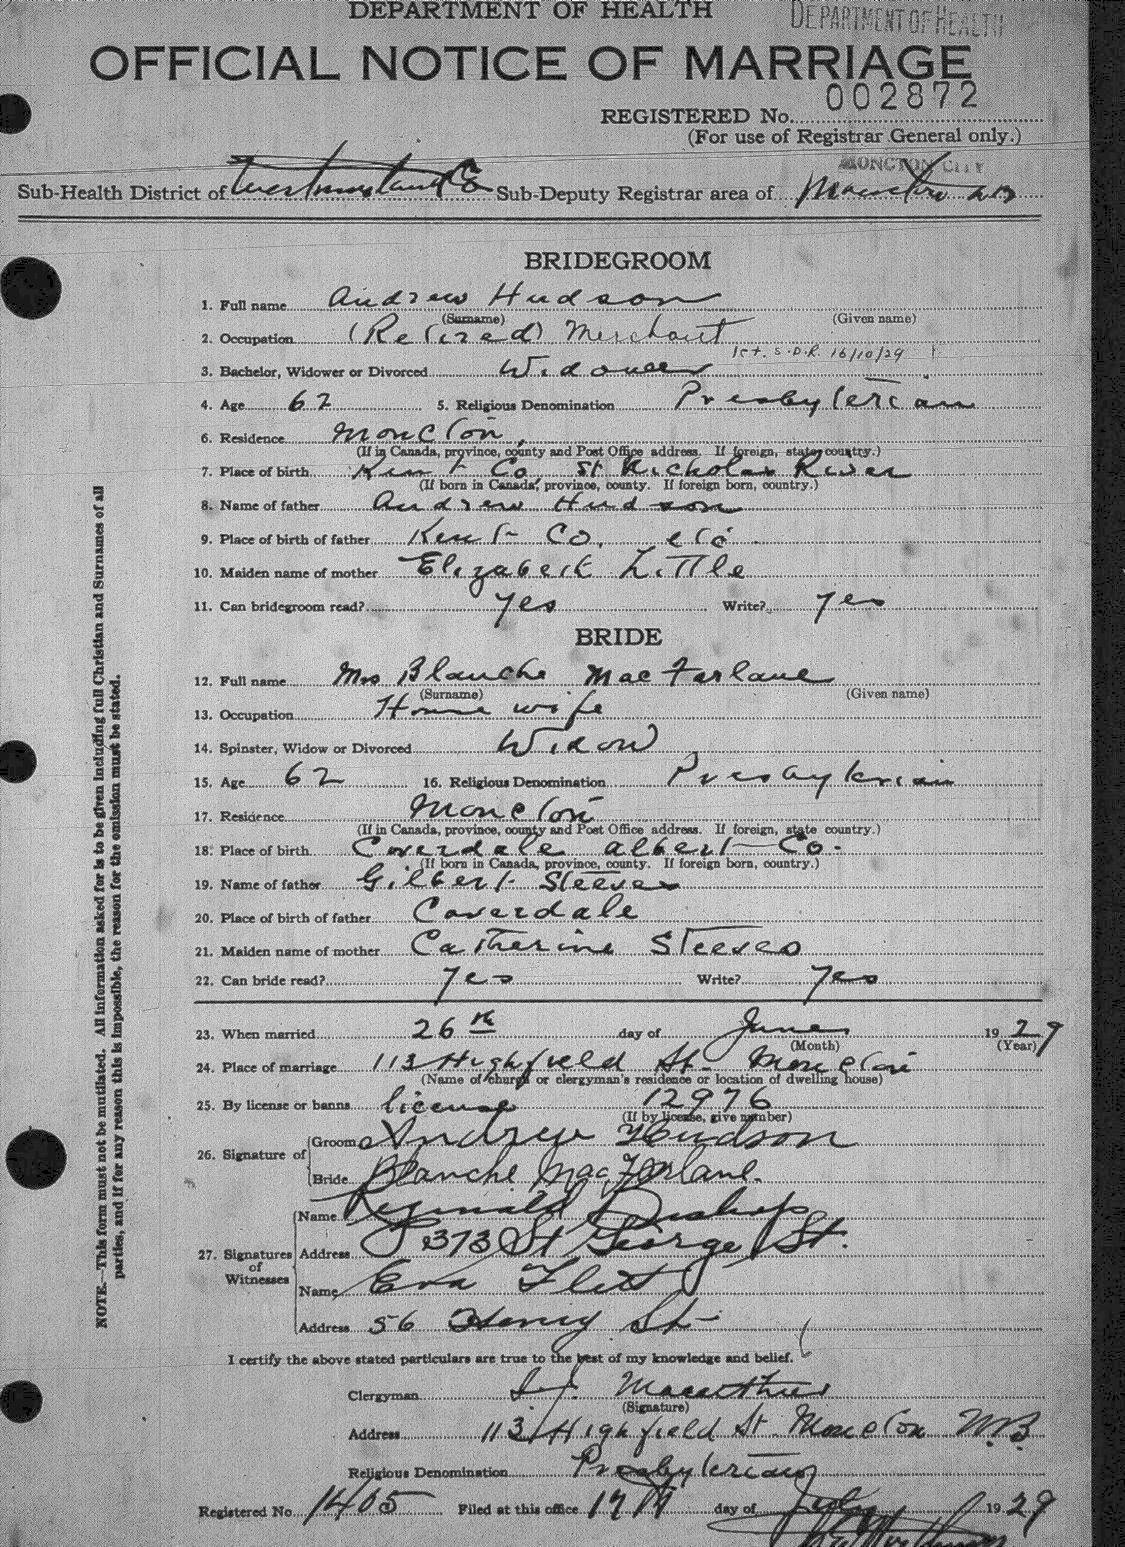 DEPARTMENT OF HEALTH
DEPARTMENT OF HEALTH
OFFICIAL NOTICE OF MARRIAGE
REGISTERED No. 002872
(For use of Registrar General only.)
MONCTON CITY
Sub-Health District of Westmorland Co Sub-Deputy Registrar area of Moncton
BRIDEGROOM
1. Full name Andrew Hudson
(Surname) (Given name)
2. Occupation (Retired) Merchant
S.D.R. 16/10/29
3. Bachelor, Widower or Divorced Widower
4. Age 62 5. Religious Denomination Presbyterian
6. Residence Moncton
(If in Canada, province, county and Post Office address. If foreign, state country.)
7. Place of birth Kent Co St Nicholas River
(If born in Canada, province, county. If foreign born, country.)
8. Name of father Andrew Hudson
9. Place of birth of father Kent Co. etc
10. Maiden name of mother Elizabeth Little
11. Can bridegroom read? yes Write? yes
BRIDE
12. Full name Mrs Blanche MacFarlane
(Surname) (Given name)
13. Occupation House wife
14. Spinster, Widow or Divorced Widow
15. Age 62 16. Religious Denomination Presbyterian
17. Residence Moncton
(If in Canada, province, county and Post Office address. If foreign, state country.)
18. Place of birth Coverdale Albert Co.
(If born in Canada, province, county. If foreign born, country.)
19. Name of father Gilbert Steeves
20. Place of birth of father Coverdale
21. Maiden name of mother Catherine Steeves
22. Can bride read? yes Write? yes
23. When married 26th day of June 1929
(Month) (Year)
24. Place of marriage 113 Highfield St. Moncton
(Name of church or clergyman's residence or location of dwelling house)
25. By license or banns license 12976
(If by license, give number)
26. Signature of Groom Andrew Hudson
Bride Blanche MacFarlane.
27. Signatures of Witnesses Name Reginald Bishop
Address 373 St George St.
Name Eva Flett
Address 56 Henry St
I certify the above stated particulars are true to the best of my knowledge and belief.
Clergyman Macarthur
(Signature)
Address 113 Highfield St. Moncton N.B.
Religious Denomination Presbyterian
Registered No. 1405 Filed at this office 17th day of July 1929
NOTE.—This form must not be mutilated. All information asked for is to be given including full Christian and Surnames of all
parties, and if for any reason this is impossible, the reason for the omission must be stated.